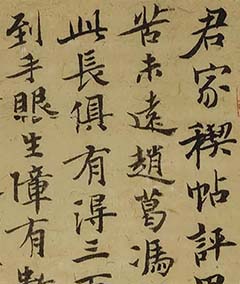 君家禊帖評
苦未遠趙葛馮
此長俱有得三
到手眼生障有